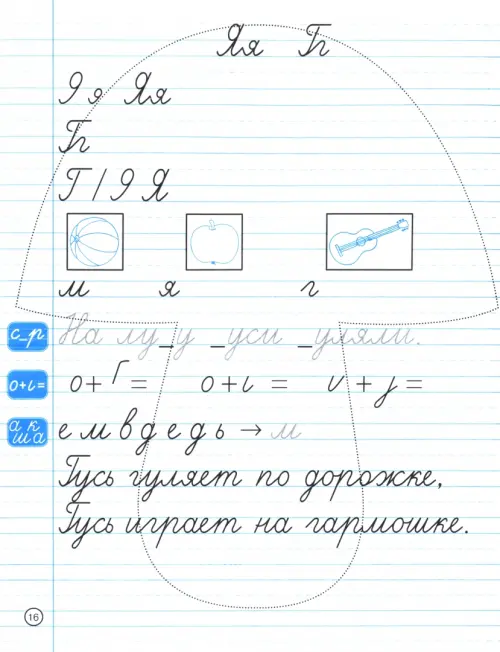 Яя Гг
Я я Яя
Гг
Г / Я Я
м я г
с_р На лу_у _уси _уляли.
о+ι= о + Г = о + ι = ν + j =
а к ша е м в д е д ь → м
Гусь гуляет по дорожке,
Гусь играет на гармошке.
16